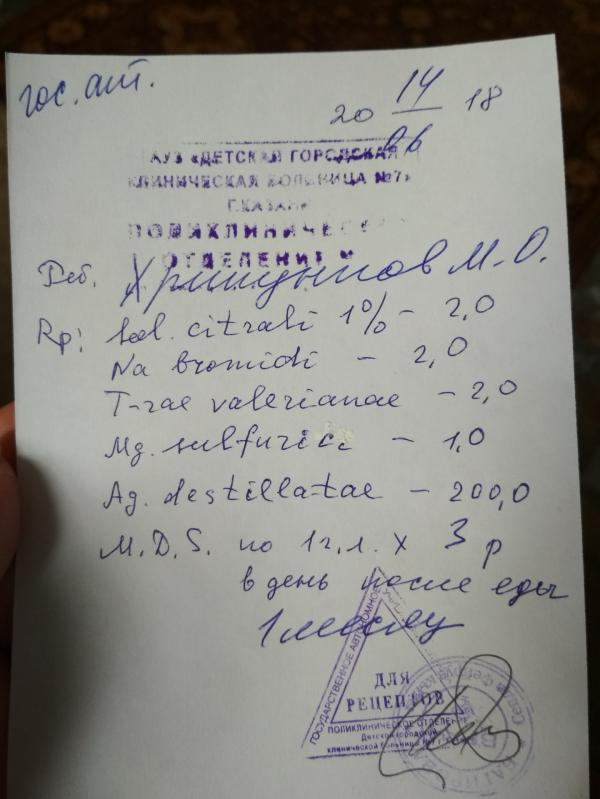 гос. апт.
20 14 18
06
ГАУЗ «ДЕТСКАЯ ГОРОДСКАЯ
КЛИНИЧЕСКАЯ БОЛЬНИЦА №7»
Г.КАЗАНИ
ПОЛИКЛИНИЧЕСКОЕ
ОТДЕЛЕНИЕ
Реб. М. О.
Rp: Sol. citrali 1% – 2,0
Na bromidi – 2,0
T-rae valerianae – 2,0
Mg. sulfurici – 1,0
Ag. destillatae – 200,0
M. D. S. по 1 г.л. x 3 р
в день после еды
1 месяц
ГОСУДАРСТВЕННОЕ АВТОНОМНОЕ
ДЛЯ
РЕЦЕПТОВ
ПОЛИКЛИНИЧЕСКОЕ ОТДЕЛЕНИЕ
Детской городской
клинической больницы №7